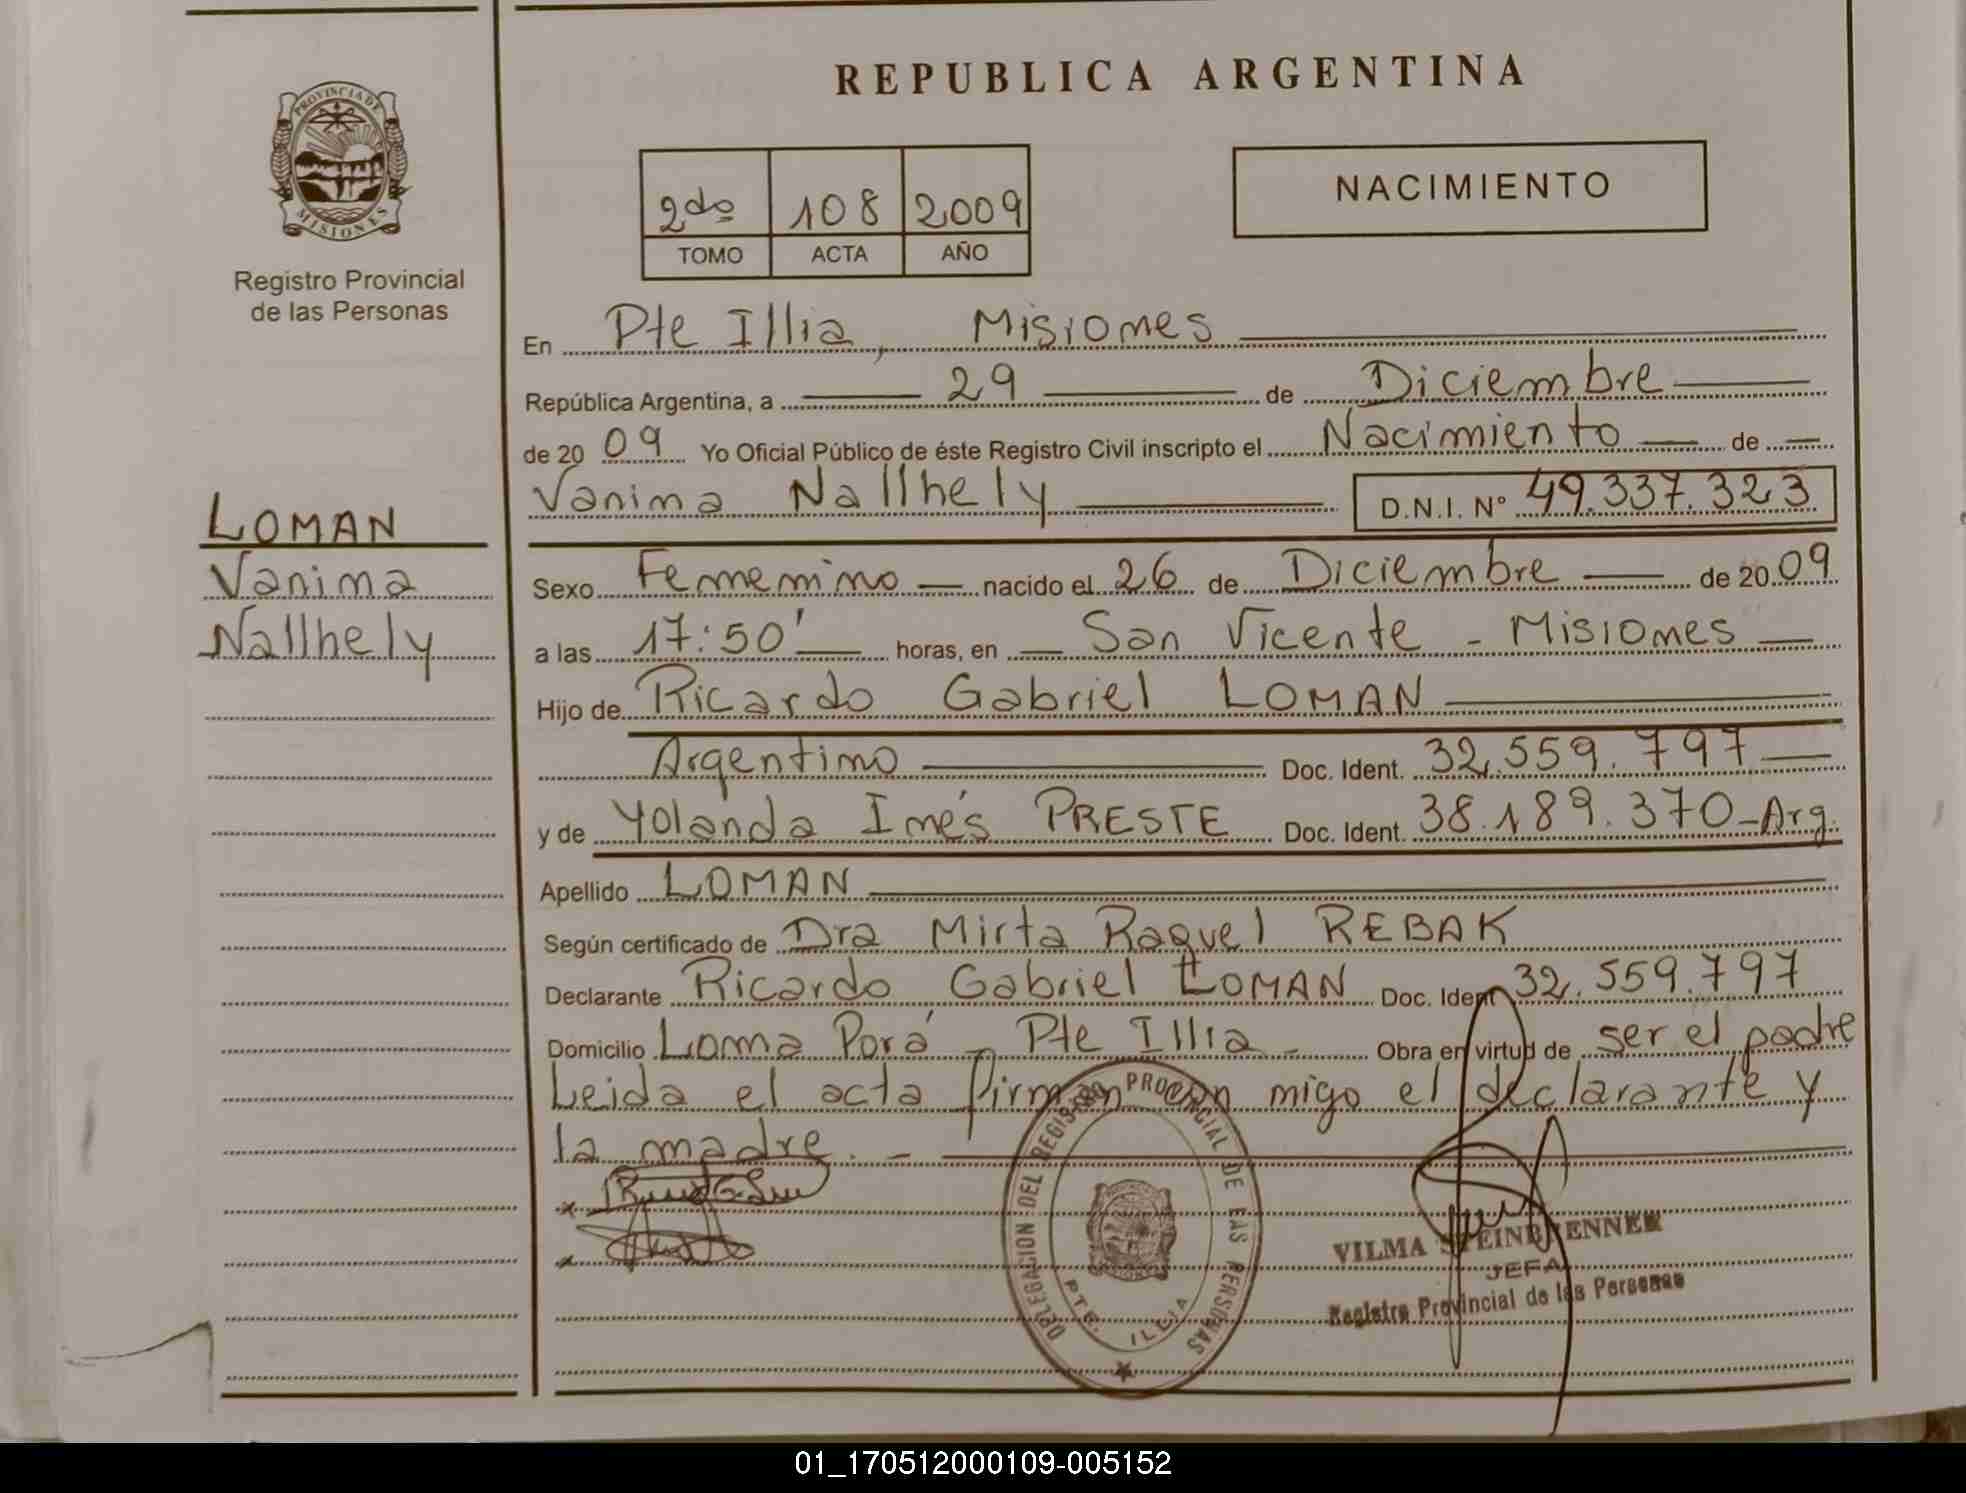 REPUBLICA ARGENTINA
PROVINCIA DE
MISIONES
Registro Provincial
de las Personas
2do 108 2009
TOMO ACTA AÑO
NACIMIENTO
En Pte Illia, Misiones
República Argentina, a 29 de Diciembre
de 20 09 Yo Oficial Público de éste Registro Civil inscripto el Nacimiento de
Vanina Nallhely D.N.I. Nº 49.337.323
LOMAN
Vanina
Nallhely
Sexo Femenino nacido el 26 de Diciembre de 20 09
a las 17:50' horas, en San Vicente - Misiones
Hijo de Ricardo Gabriel LOMAN
Argentino Doc. Ident. 32.559.797
y de Yolanda Inés PRESTE Doc. Ident. 38.189.370-Arg.
Apellido LOMAN
Según certificado de Dra Mirta Raquel REBAK
Declarante Ricardo Gabriel LOMAN Doc. Ident 32.559.797
Domicilio Loma Porá - Pte Illia - Obra en virtud de ser el padre
Leida el acta firman con migo el declarante y
la madre. -
DELEGACION DEL REGISTRO PROVINCIAL DE LAS PERSONAS
PTE. ILLIA
VILMA STEINBRENNER
JEFA
Registro Provincial de las Personas
01_170512000109-005152